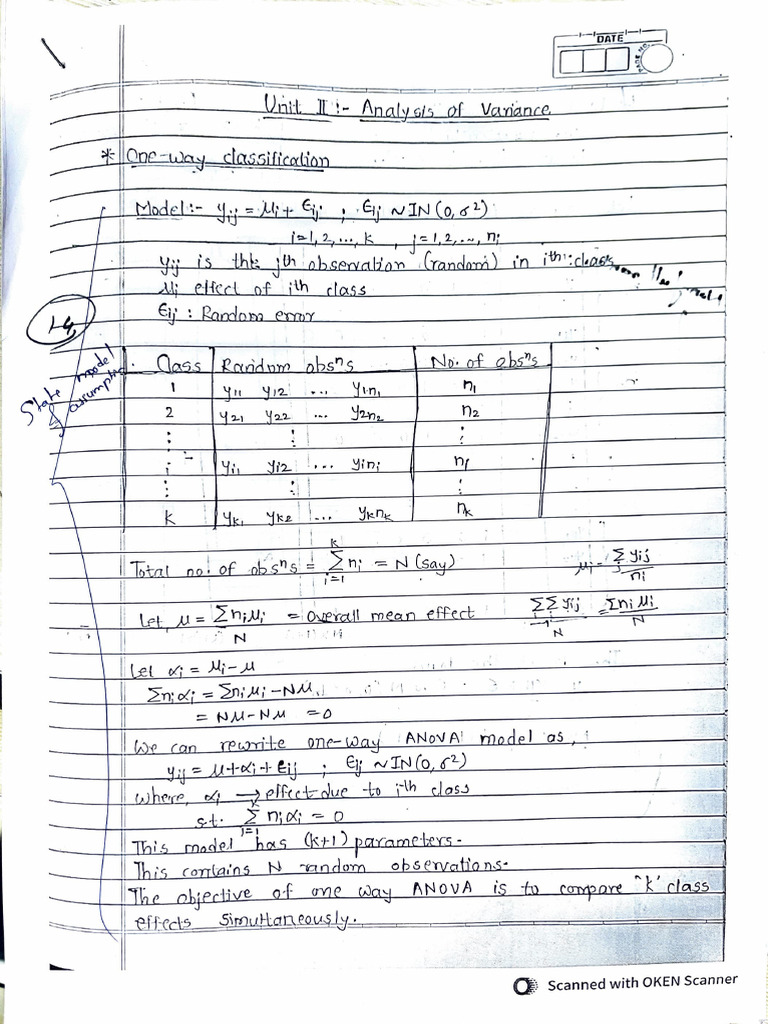 DATE
PAGE NO.
Unit II :- Analysis of Variance
* One-way classification
Model :- yij = μi + Єij ; Єij ~ IN (0, σ²)
i=1,2,...,k , j=1,2,...,ni
yij is the jth observation (random) in ith class
μi effect of ith class
Єij : Random error
14
State model & assumptn
Class Random obsⁿs No. of obsⁿs
1 y11 y12 ... y1n1 n1
2 y21 y22 ... y2n2 n2
⋮ ⋮ ⋮
i yi1 yi2 ... yini ni
⋮ ⋮ ⋮
k yk1 yk2 ... yknk nk
Total no. of obsⁿs = k∑i=1 ni = N (say) μi = ∑j yij / ni
Let, μ = ∑niμi / N = overall mean effect ∑∑ yij / N = ∑ni μi / N
Let αi = μi - μ
∑niαi = ∑niμi - Nμ
= Nμ - Nμ = 0
We can rewrite one-way ANOVA model as,
yij = μ + αi + Єij ; Єij ~ IN (0, σ²)
where, αi → effect due to ith class
s.t. k∑i=1 niαi = 0
This model has (k+1) parameters.
This contains N random observations.
The objective of one way ANOVA is to compare 'k' class
effects simultaneously.
Scanned with OKEN Scanner